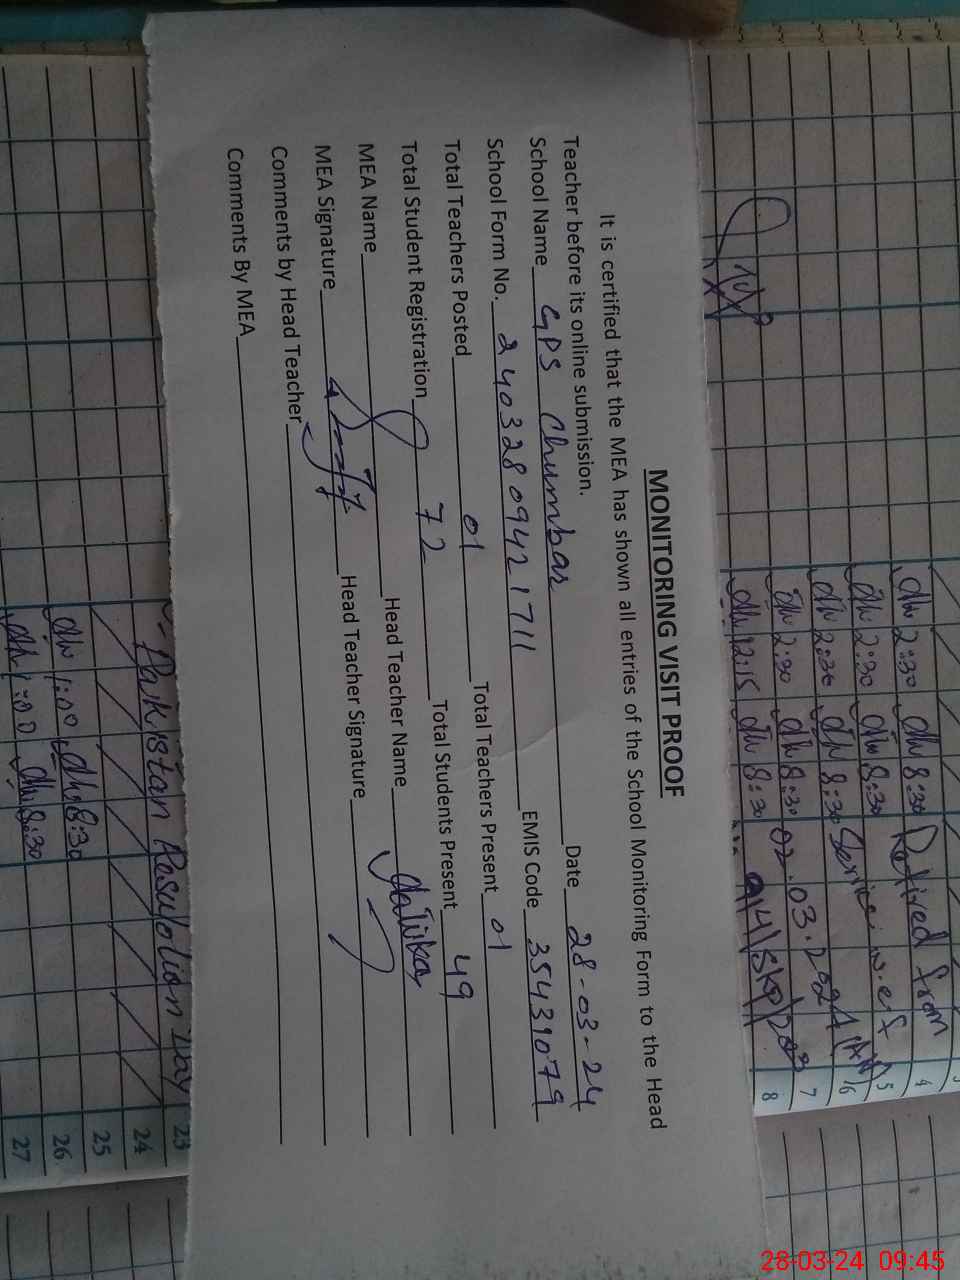 MONITORING VISIT PROOF
It is certified that the MEA has shown all entries of the School Monitoring Form to the Head
Teacher before its online submission.
School Name GPS Chumbar Date 28-03-24
School Form No. 2403280942 1711 EMIS Code 35431079
Total Teachers Posted 01 Total Teachers Present 01
Total Student Registration 72 Total Students Present 49
MEA Name Head Teacher Name
MEA Signature Head Teacher Signature
Comments by Head Teacher
Comments By MEA
2:30 8:30 Retired from 4
2:30 8:30 Service w.e.f 5
2:30 8:30 6
2:30 8:30 02.03.2024 7
12:15 8:30 8
Pakistan Resulotion Day 23
24
25
1:00 8:30 26
1:00 8:30 27
28-03-24 09:45